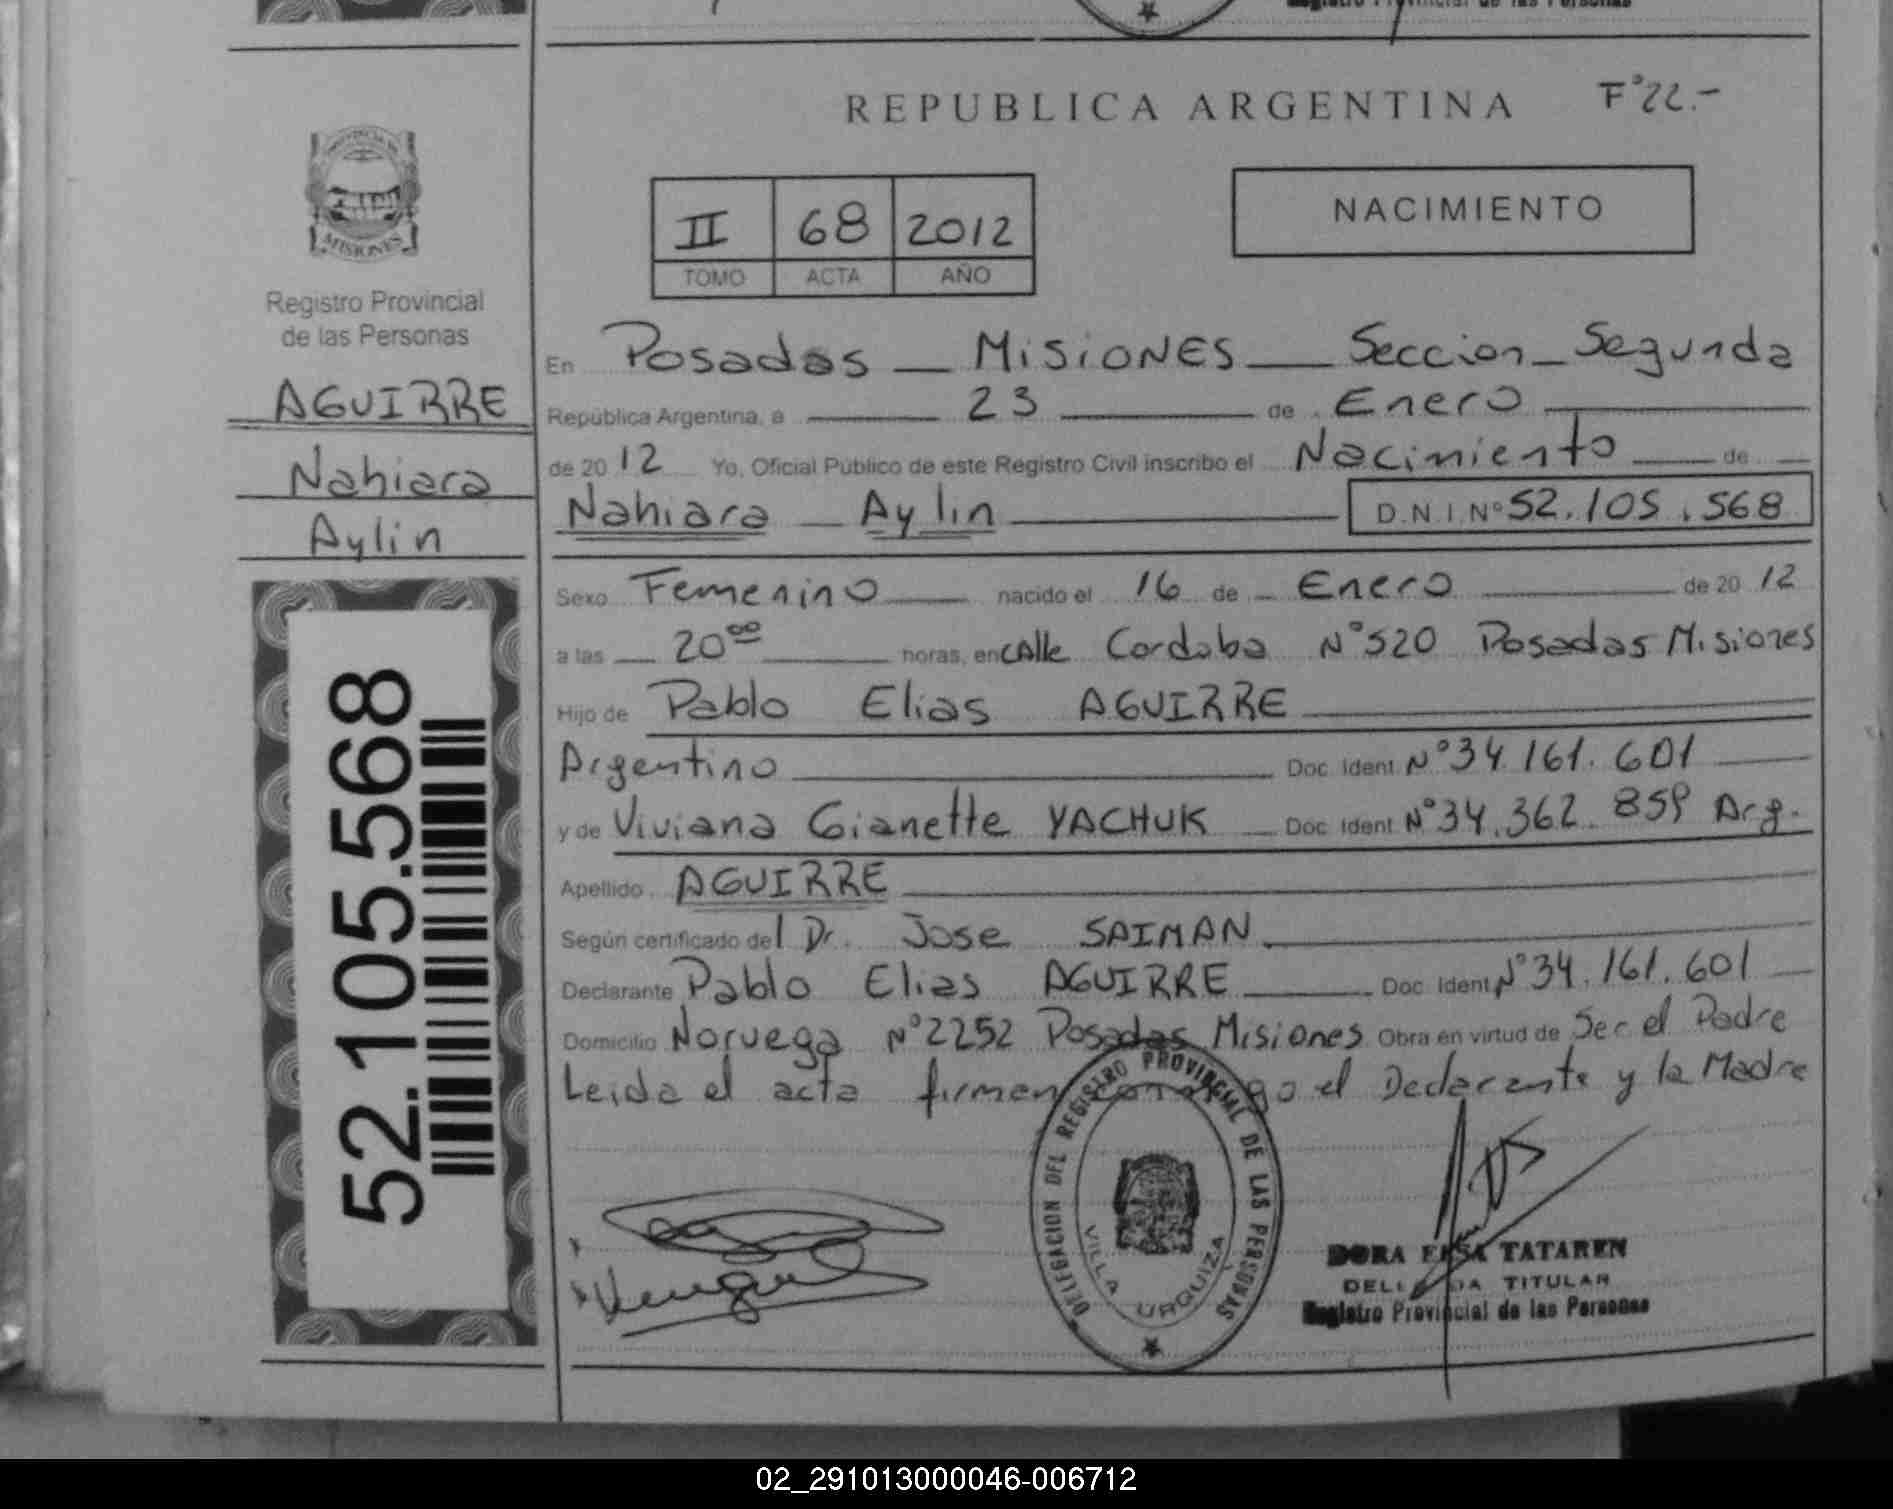 Registro Provincial de las Personas
REPUBLICA ARGENTINA F°22.-
II 68 2012
TOMO ACTA AÑO
NACIMIENTO
PROVINCIA DE
MISIONES
Registro Provincial
de las Personas
AGUIRRE
Nahiara
Aylin
52.105.568
En Posadas Misiones Seccion Segunda
República Argentina, a 23 de Enero
de 2012 Yo, Oficial Público de este Registro Civil inscribo el Nacimiento de
Nahiara Aylin D.N.I.Nº 52.105.568
Sexo Femenino nacido el 16 de Enero de 2012
a las 20°° horas, en calle Cordoba N°520 Posadas Misiones
Hijo de Pablo Elias AGUIRRE
Argentino Doc. Ident. N°34.161.601
y de Viviana Gianette YACHUK Doc. Ident. N°34.362.859 Arg.
Apellido AGUIRRE
Según certificado del Dr. Jose SAIMAN
Declarante Pablo Elias AGUIRRE Doc. Ident. N°34.161.601
Domicilio Noruega N°2252 Posadas Misiones Obra en virtud de Ser el Padre
Leida el acta firman conmigo el Declarante y la Madre
DELEGACION DEL REGISTRO PROVINCIAL DE LAS PERSONAS
VILLA URQUIZA
DORA ELSA TATAREN
DELEGADA TITULAR
Registro Provincial de las Personas
02_291013000046-006712